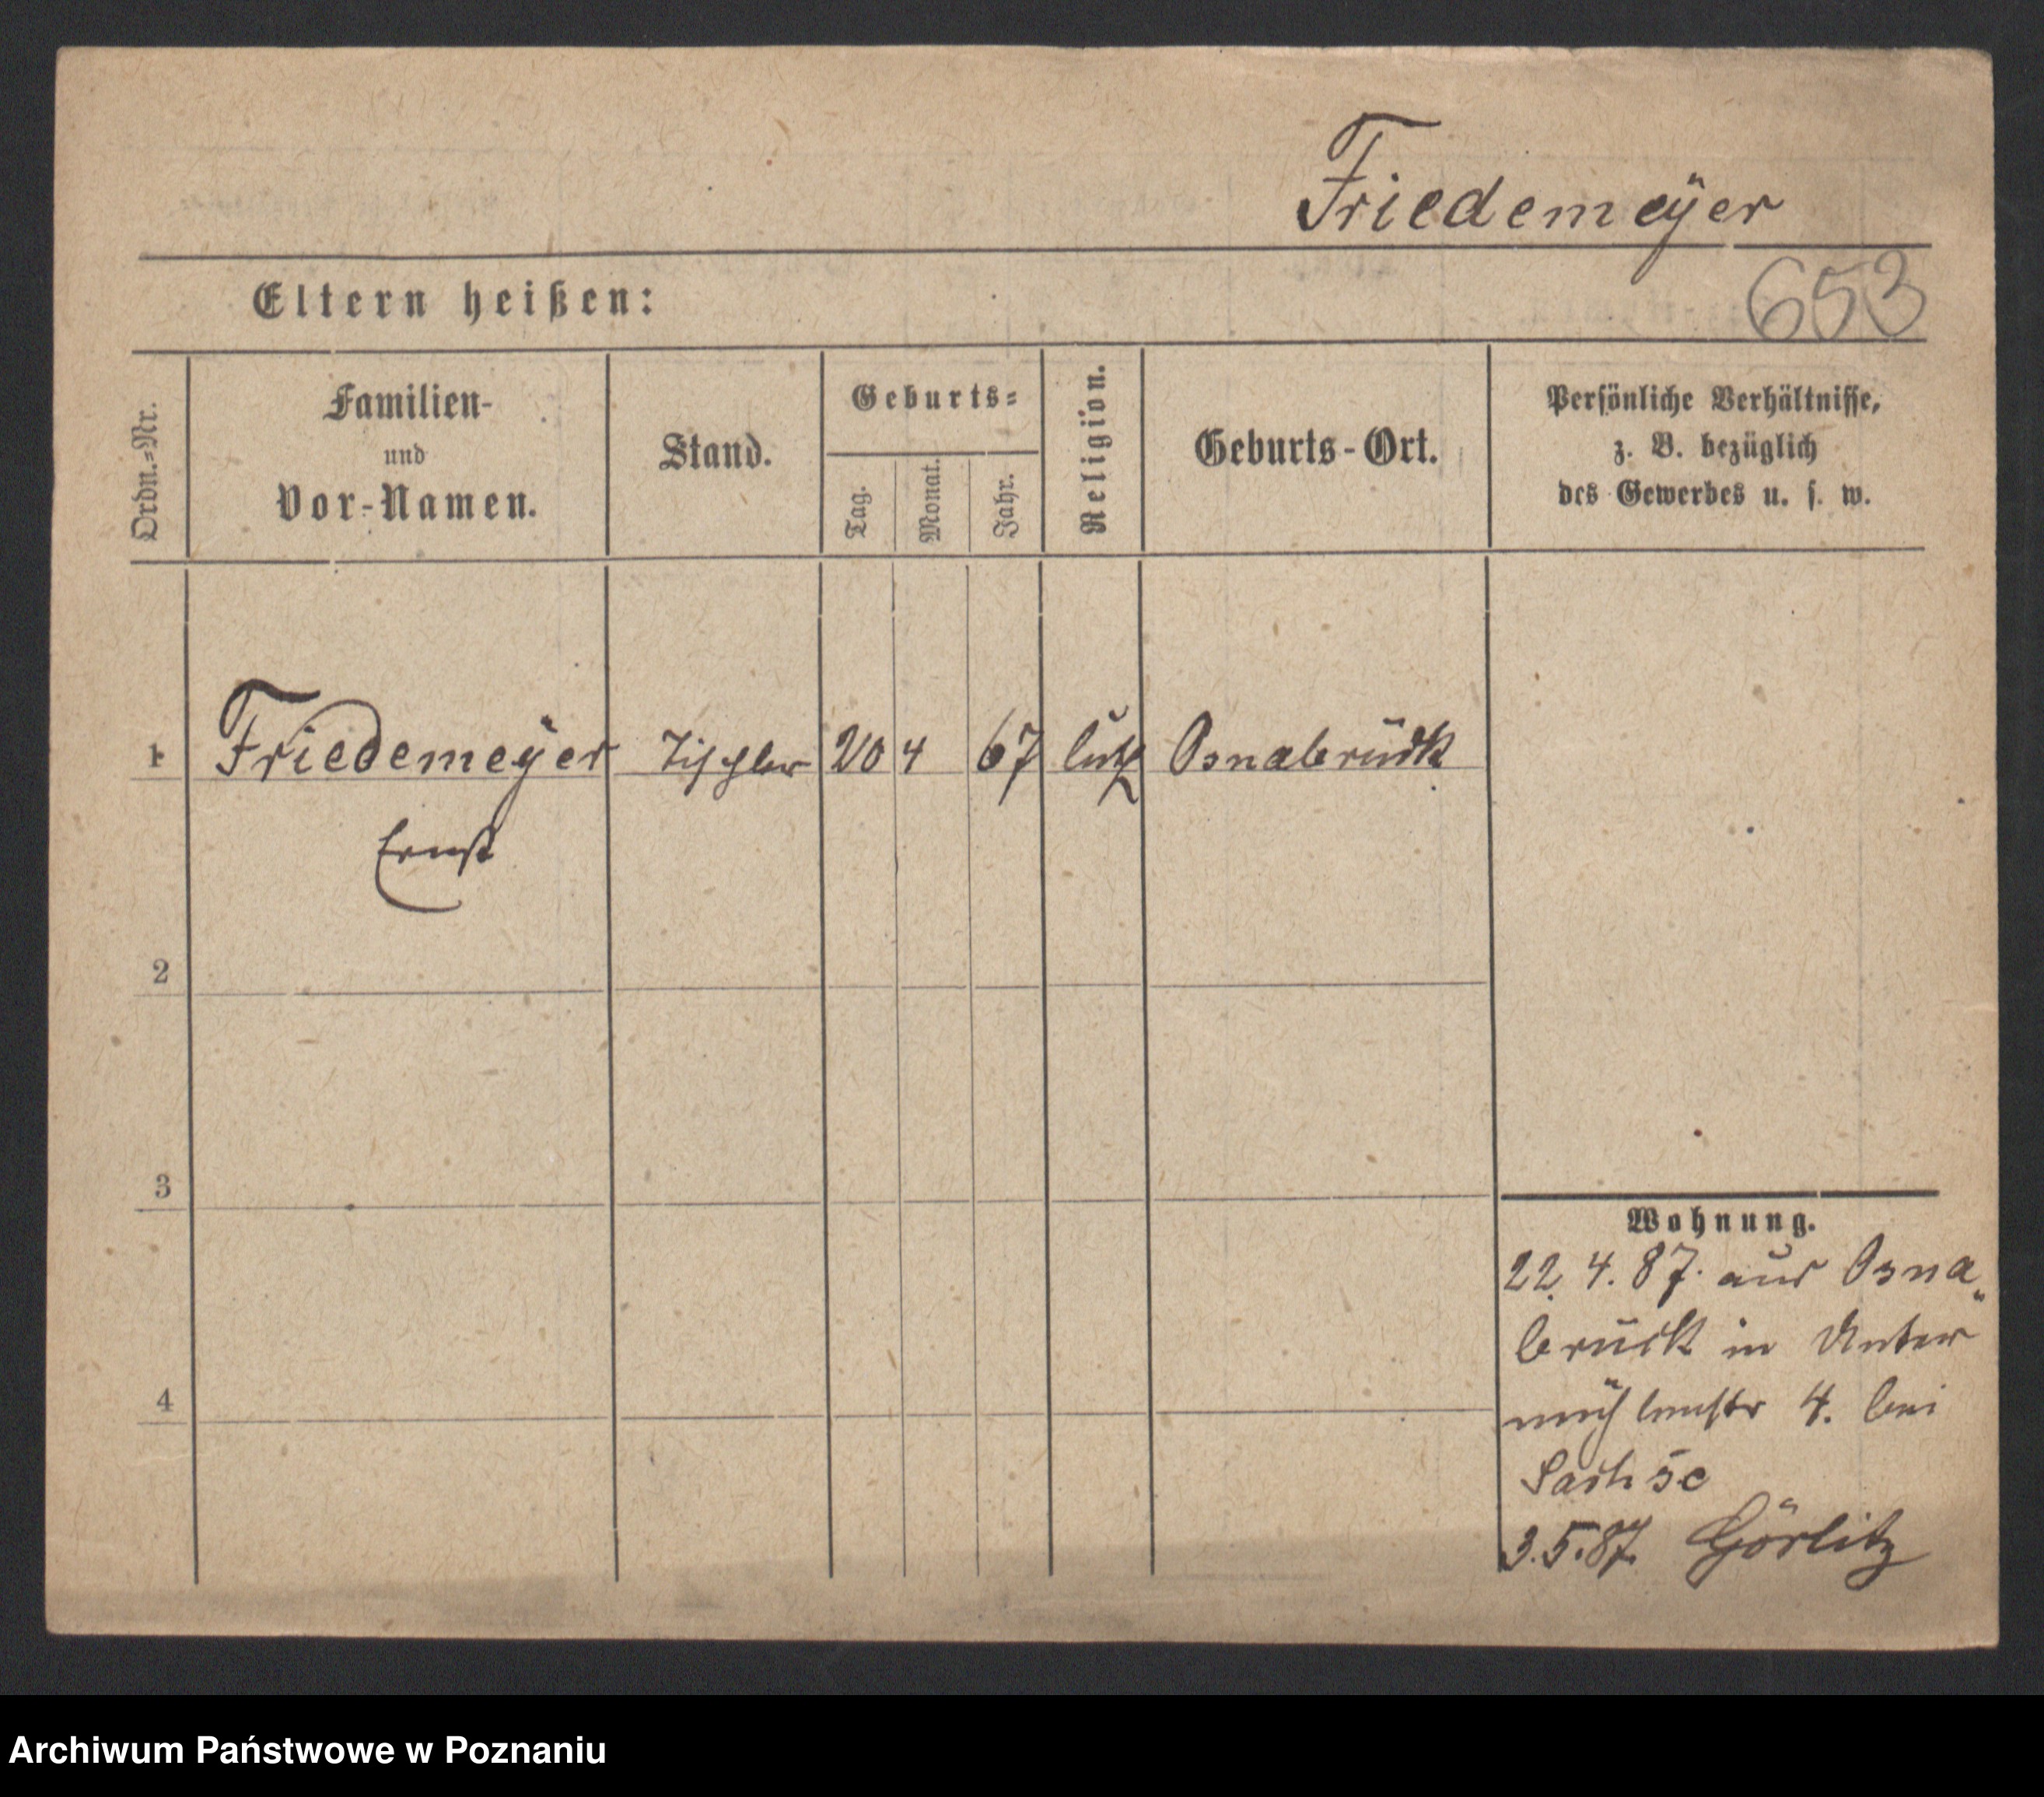 Friedemeÿer
653
Eltern heißen:
Ordn.-Nr.
Familien-
und
Vor-Namen.
Stand.
Geburts-
Tag.
Monat.
Jahr.
Religion.
Geburts-Ort.
Persönliche Verhältnisse,
z. B. bezüglich
des Gewerbes u. s. w.
1 Friedemeÿer Tischler 20 4 67 luth Osnabrück
Ernst
2
3
4
Wohnung.
22. 4. 87. aus Osna„
brück in Unter
mühlenstr 4. bei
Sachse
3. 5. 87. Görlitz
Archiwum Państwowe w Poznaniu